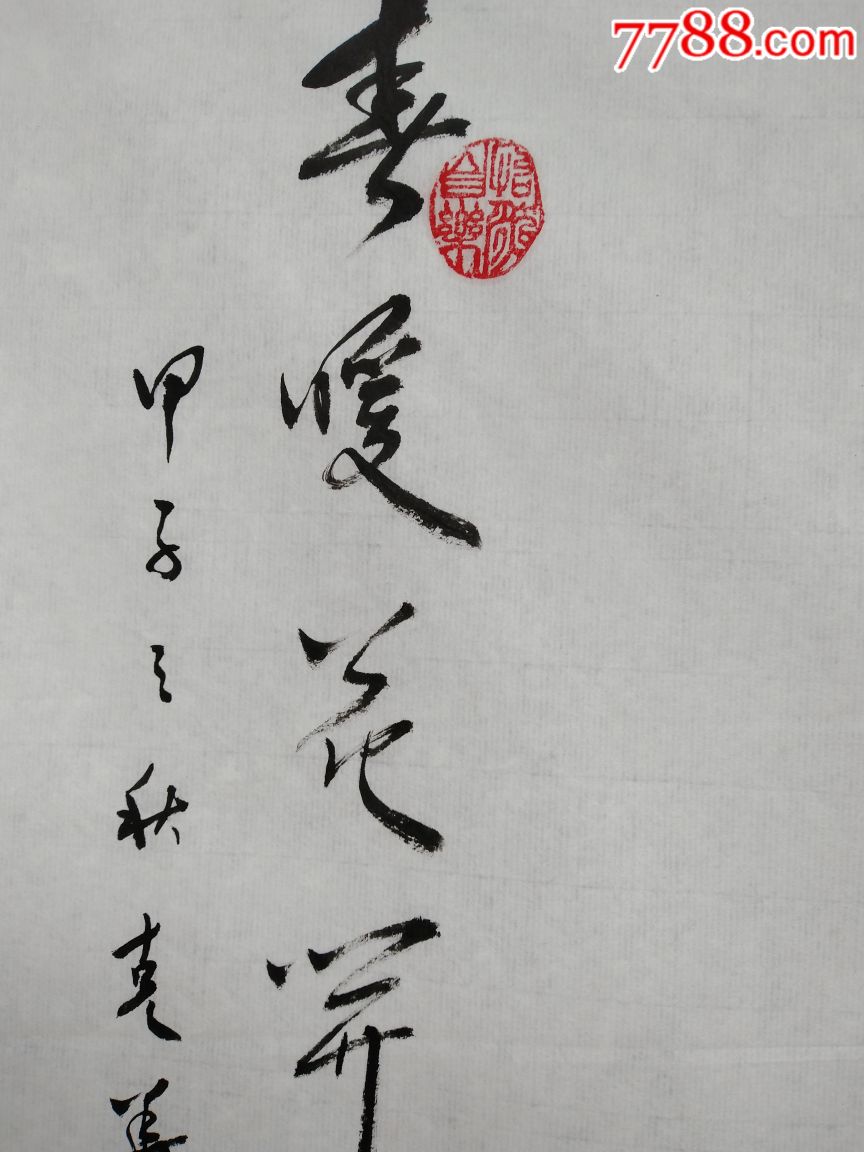 7788.com
春暖花開
怡然自樂
甲子之秋克